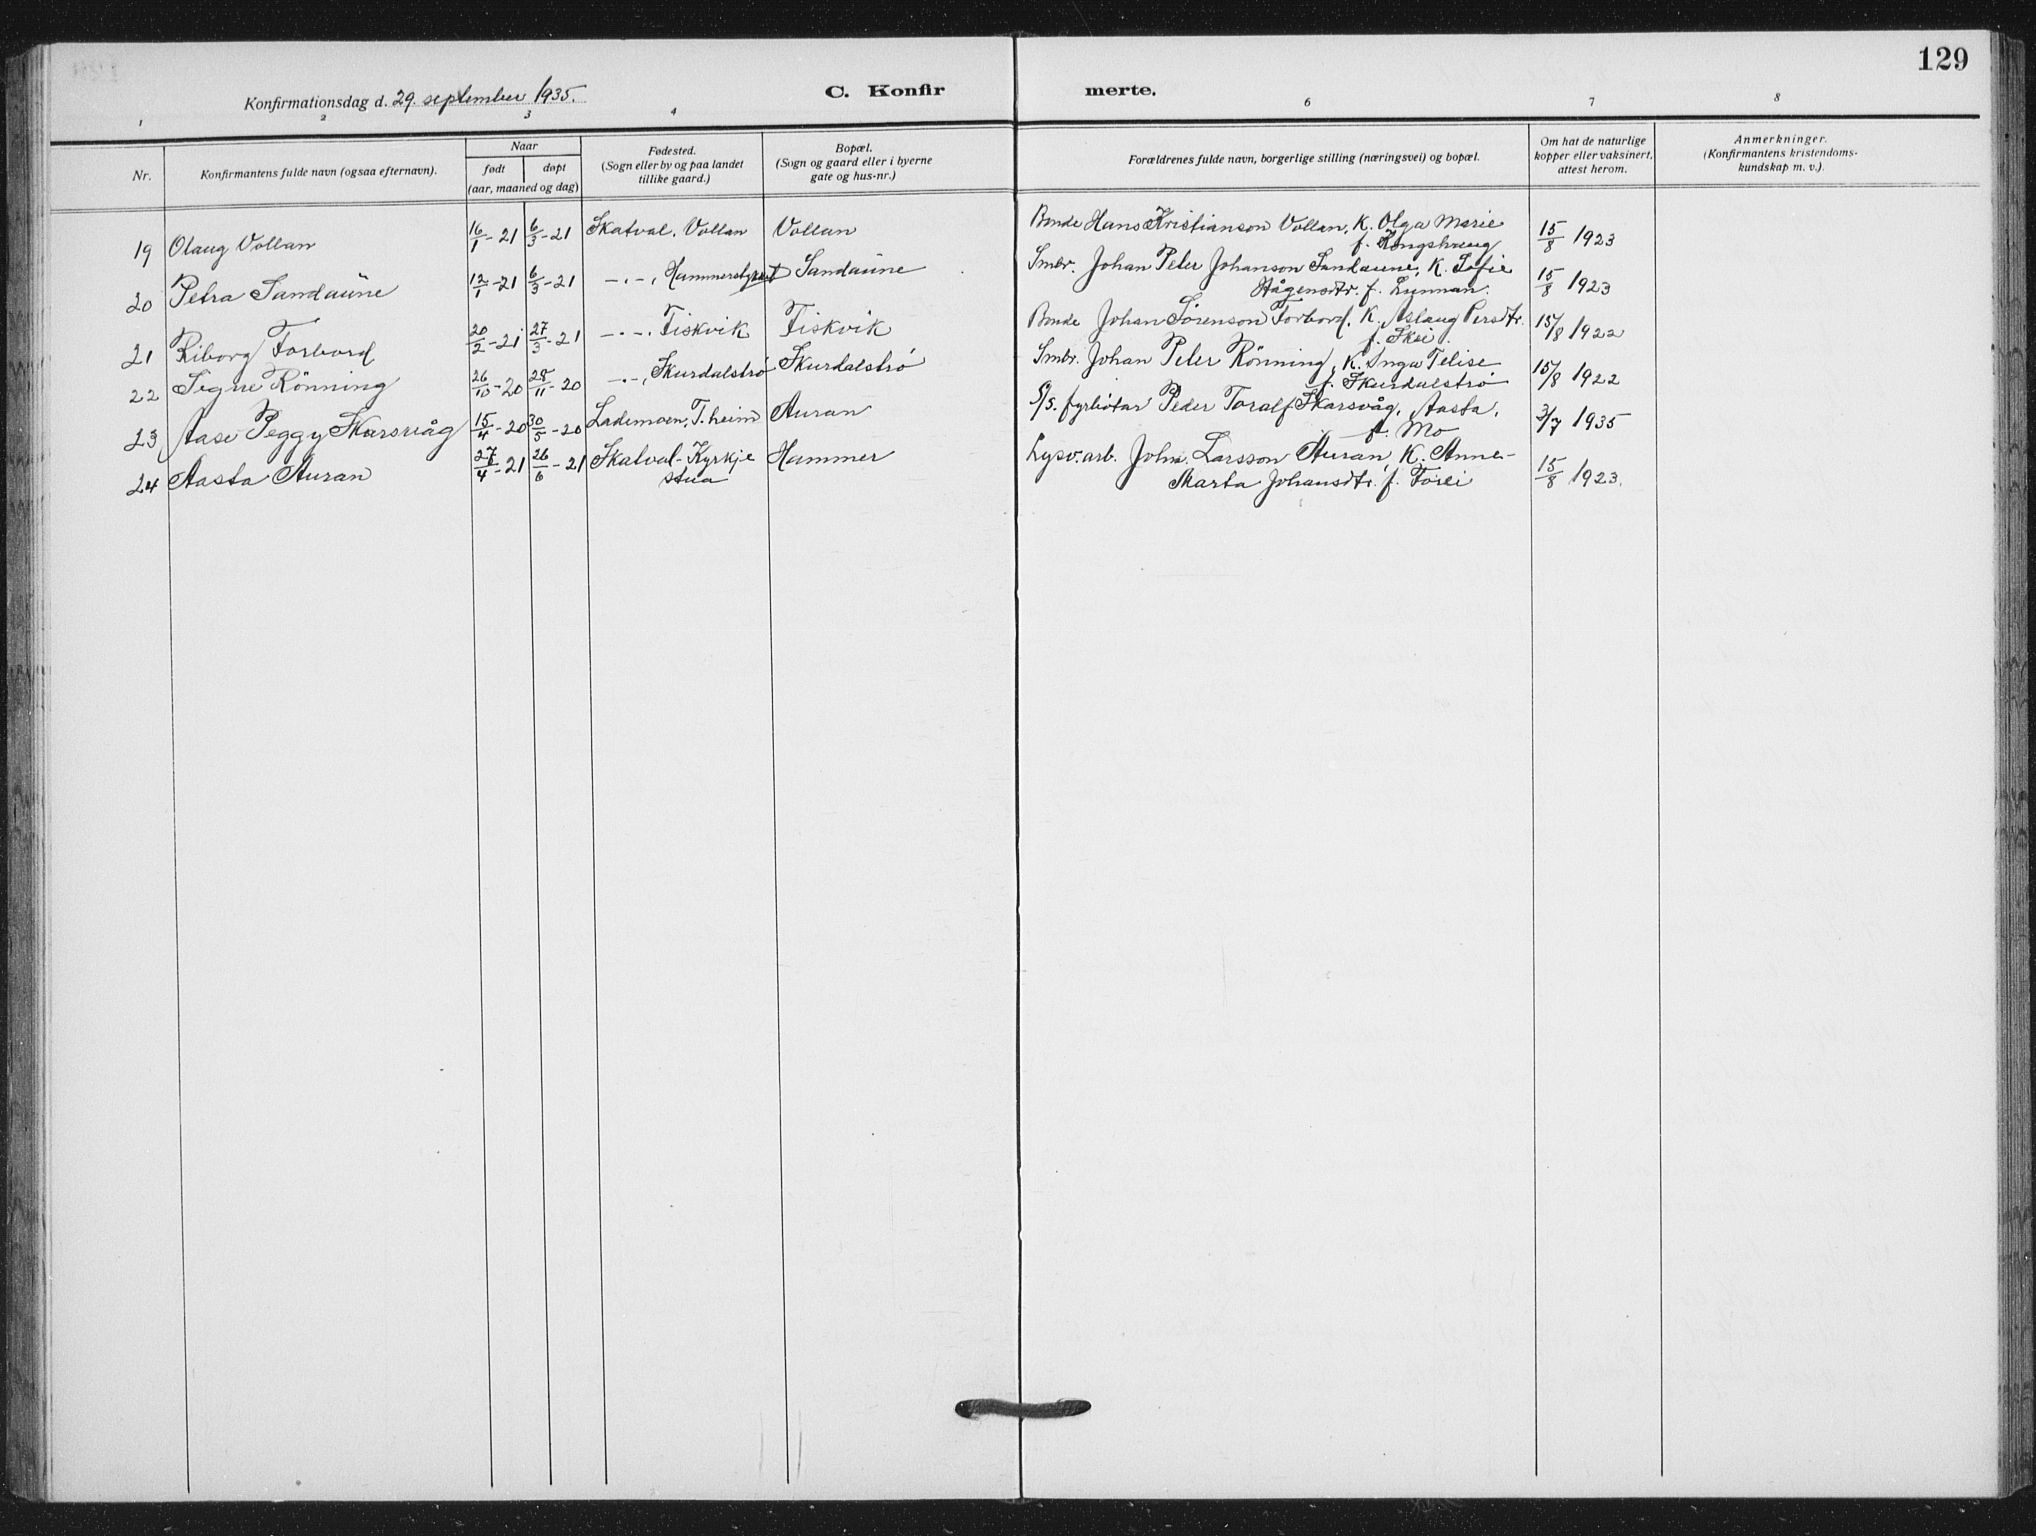 129
Konfirmationsdag d. 29. september 1935.
C. Konfirmerte.
1 2 3 4 6 7 8
Nr.
Konfirmantens fulde navn (ogsaa efternavn).
Naar
født døpt
(aar, maaned og dag)
Fødested.
(Sogn eller by og paa landet
tillike gaard.)
Bopæl.
(Sogn og gaard eller i byerne
gate og hus-nr.)
Forældrenes fulde navn, borgerlige stilling (næringsvei) og bopæl.
Om hat de naturlige
kopper eller vaksinert,
attest herom.
Anmerkninger.
(Konfirmantens kristendoms-
kundskap m. v.).
19 Olaug Vollan 16/1-21 6/3-21 Skatval, Vollan Vollan Bonde Hans Kristianson Vollan, K. Olga Marie
f. Kongshaug 15/8 1923
20 Petra Sandaune 12/1-21 6/3-21 —·—, Sandaune Smbr. Johan Peter Johanson Sandaune, K. Sofie
Hågensdtr. f. Lunnan. 15/8 1923
21 Riborg Forbord 20/2-21 27/3-21 —·—, Fiskvik Fiskvik Bonde Johan Sörenson Forbord, K. Aslaug Persdtr.
f. Skei. 15/8 1922
22 Signe Rönning 26/10-20 28/11-20 —·—, Skurdalstrø Skurdalstrø Smbr. Johan Peter Rönning, K. Inga Telise
f. Skurdalstrø 15/8 1922
23 Aase Peggy Skarsvåg 15/4-20 30/5-20 Lademoen, T.heim Auran S/s. fyrbötar Peder Toralf Skarsvåg, Aasta,
f. Mo 3/7 1935
24 Aasta Auran 27/4-21 26/6-21 Skatval-Kyrkje
stua Hammer Lysv.arb. John Larsson Auran, K. Anne-
Marta Johansdtr. f. Forei 15/8 1923.